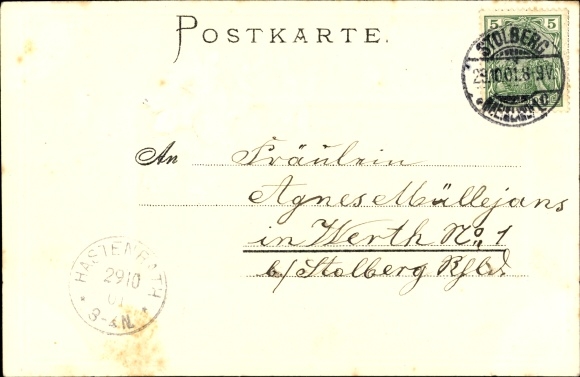 POSTKARTE.
5 5
STOLBERG
29.10.01.8-9V
An Fräulein
Agnes Müllejans
in Werth No. 1
b/Stolberg Rhld.
HASTENRATH
29 10
01
8-  N.